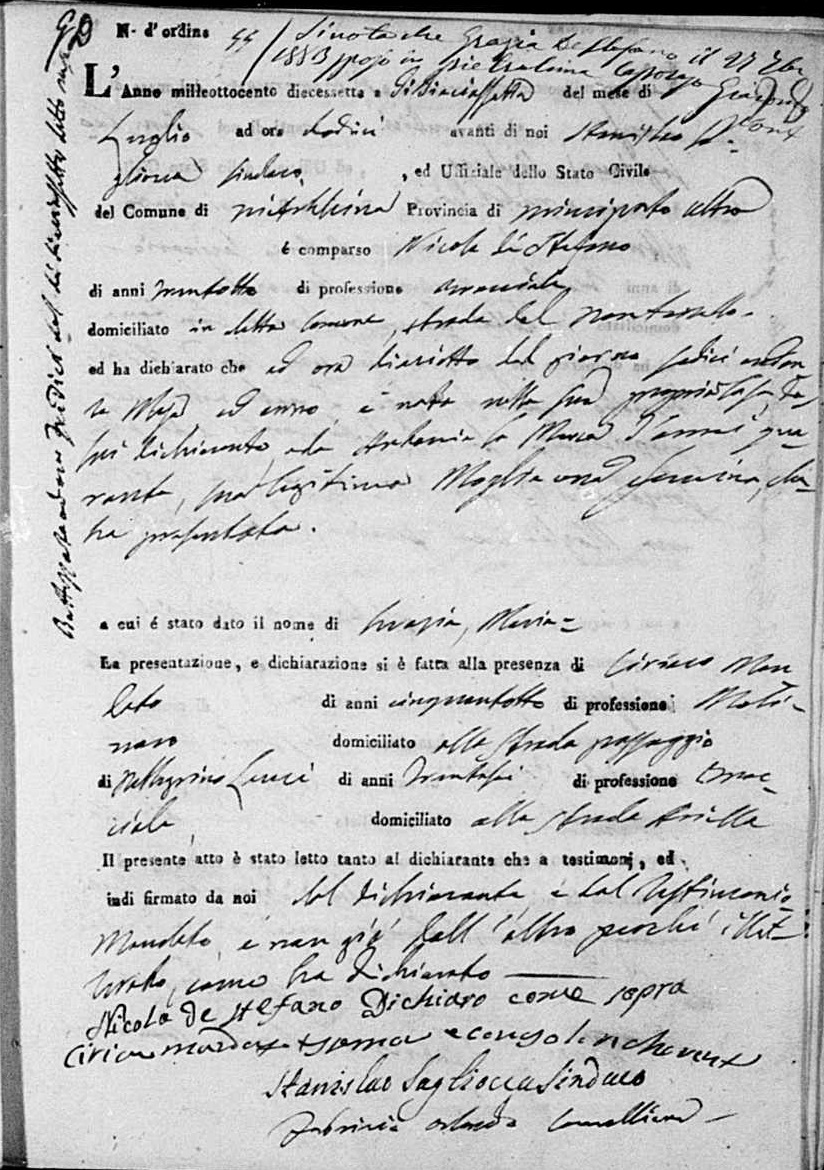 GD N- d'ordine 44 Si nota che Grazia de Stefano il 27
1883 sposò in Pietralcina
L'Anno milleottocento diecessette a di diecissette del mese di
Luglio ad ore dodici avanti di noi Stanislao Sa-
gliocca Sindaco, ed Uffiziale dello Stato Civile
del Comune di Pietralcina Provincia di principato ultra
é comparso Nicola de Stefano
di anni trentotto di professione
domiciliato in detto Comune, strada del
ed ha dichiarato che ad ore dieciotto del giorno sedici andan-
te Mese ed anno è nata nella sua propria Casa, da
lui dichiarante e da Antonia la Marca d'anni qua-
ranta, sua legitima Moglie una femina, che
ha presentata.
a cui é stato dato il nome di Grazia, Maria=
La presentazione, e dichiarazione si è fatta alla presenza di Ciriaco Man
dato di anni cinquantotto di professione Moli-
naro domiciliato alla strada passaggio
di Pellegrino di anni trentasei di professione
ciale domiciliato alla strada
Il presente atto è stato letto tanto al dichiarante che a testimonj, ed
indi firmato da noi dal dichiarante e dal testimonio
Mandato, e non già dall'altro perché illet-
terato, come ha dichiarato
Nicola de stefano Dichiaro come sopra
Ciriaco mandato
Stanislao Sagliocca Sindaco
Fabrizio Orlando Cancelliere
Battezzata ad ore del dì diecissette detto mese